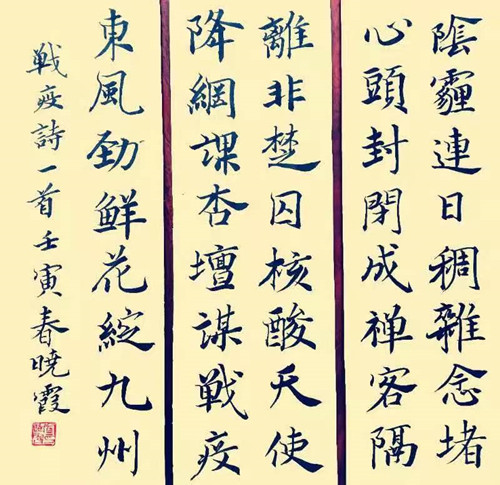 陰霾連日稠雜念堵
心頭封閉成禅客隔
離非楚囚核酸天使
降網課杏壇謀戦疫
東風勁鮮花綻九州
戦疫詩一首壬寅春曉霞